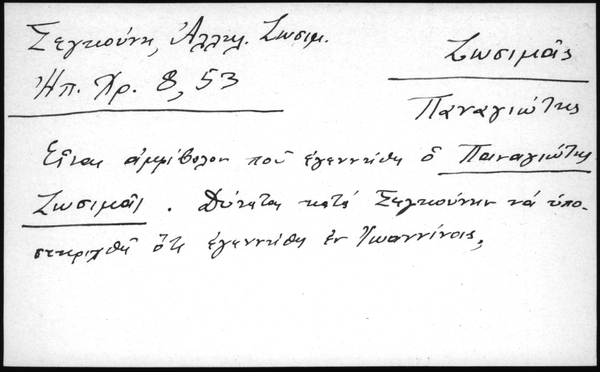 Σεγκούνη, Ἀλληλ. Ζωσιμ.
Ἠπ. Χρ. 8, 53
Ζωσιμᾶς
Παναγιώτης
Εἶναι ἀμφίβολον ποῦ ἐγεννήθη ὁ Παναγιώτης
Ζωσιμᾶς. Δύναται κατὰ Σεγκούνην νὰ ὑπο-
στηριχθῇ ὅτι ἐγεννήθη ἐν Ἰωαννίνοις,